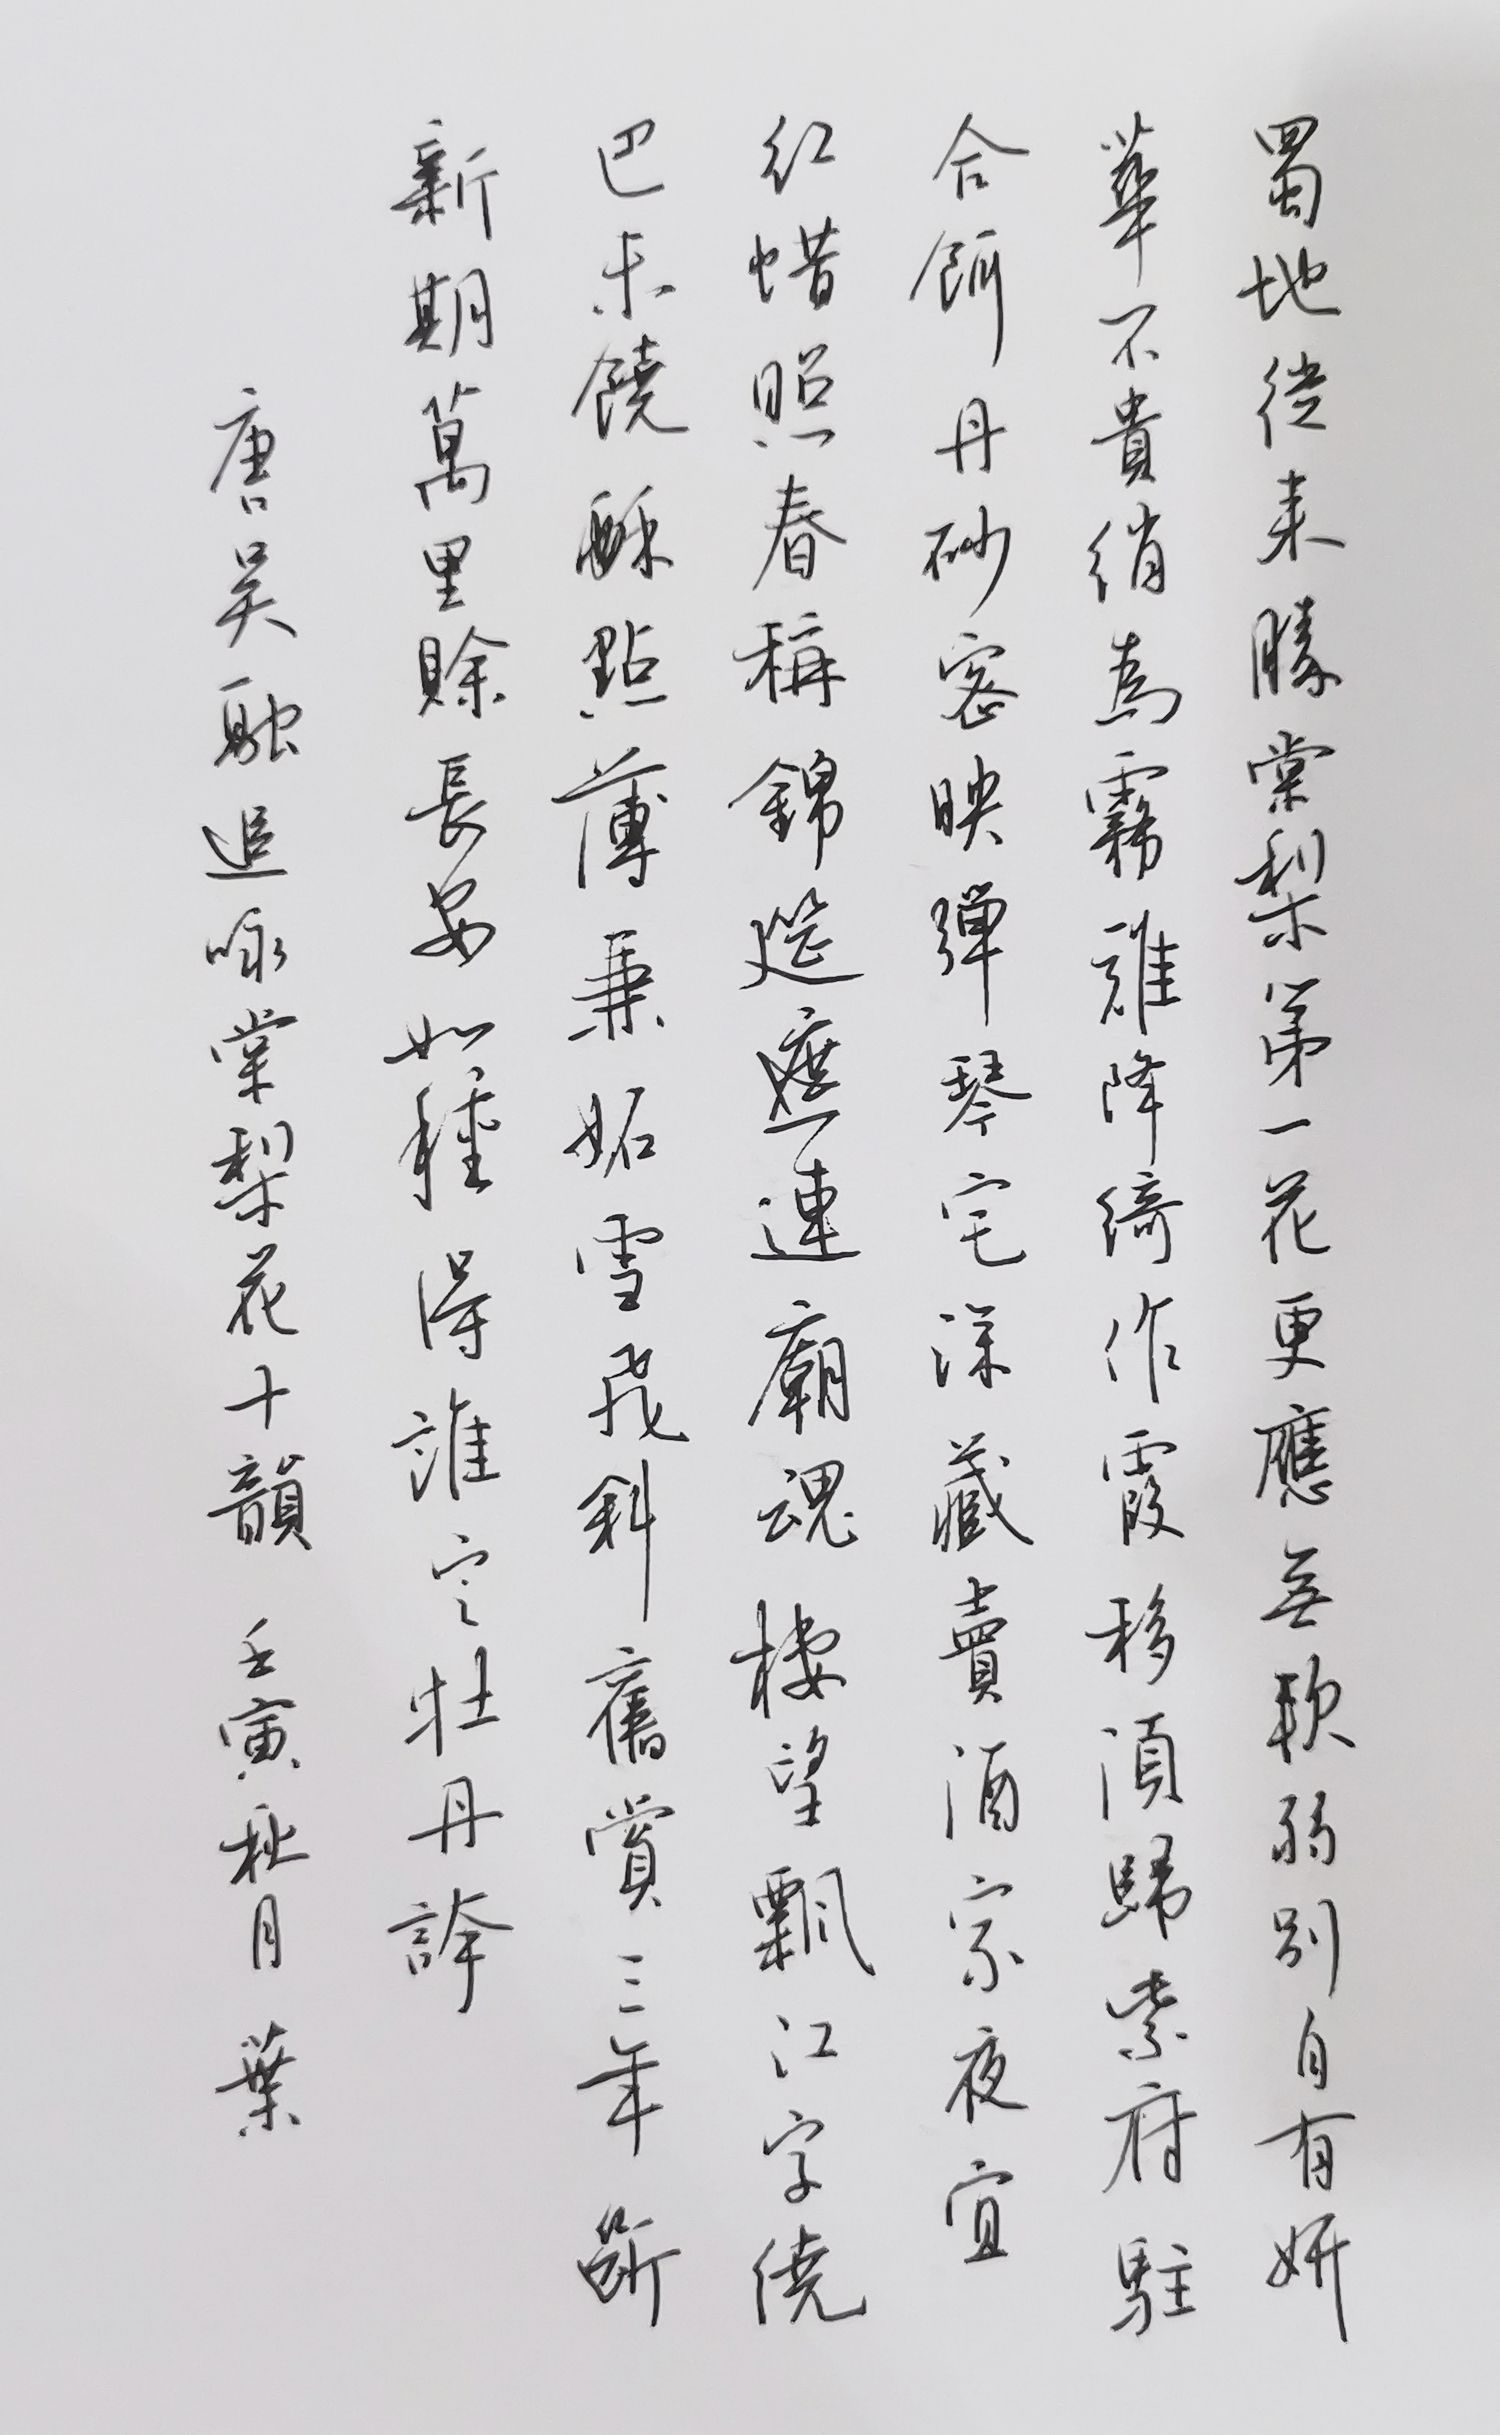 蜀地從来勝棠梨第一花更應無軟弱别自有妍
華不貴綃為霧誰降綺作霞移須歸紫府駐
合餌丹砂密映彈琴宅深藏賣酒家夜宜
红蜡照春稱錦筵遮連廟魂棲望飄江字繞
巴未饒酥點薄兼妬雪飛斜舊賞三年斷
新期萬里賒長安如種得誰定牡丹誇
唐吴融追咏棠梨花十韻 壬寅秋月 葉